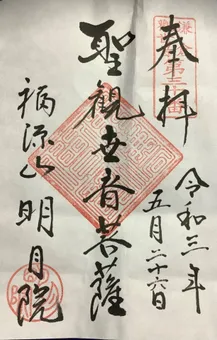 奉拝
令和三年
五月二十六日
聖観世音菩薩
福源山明月院